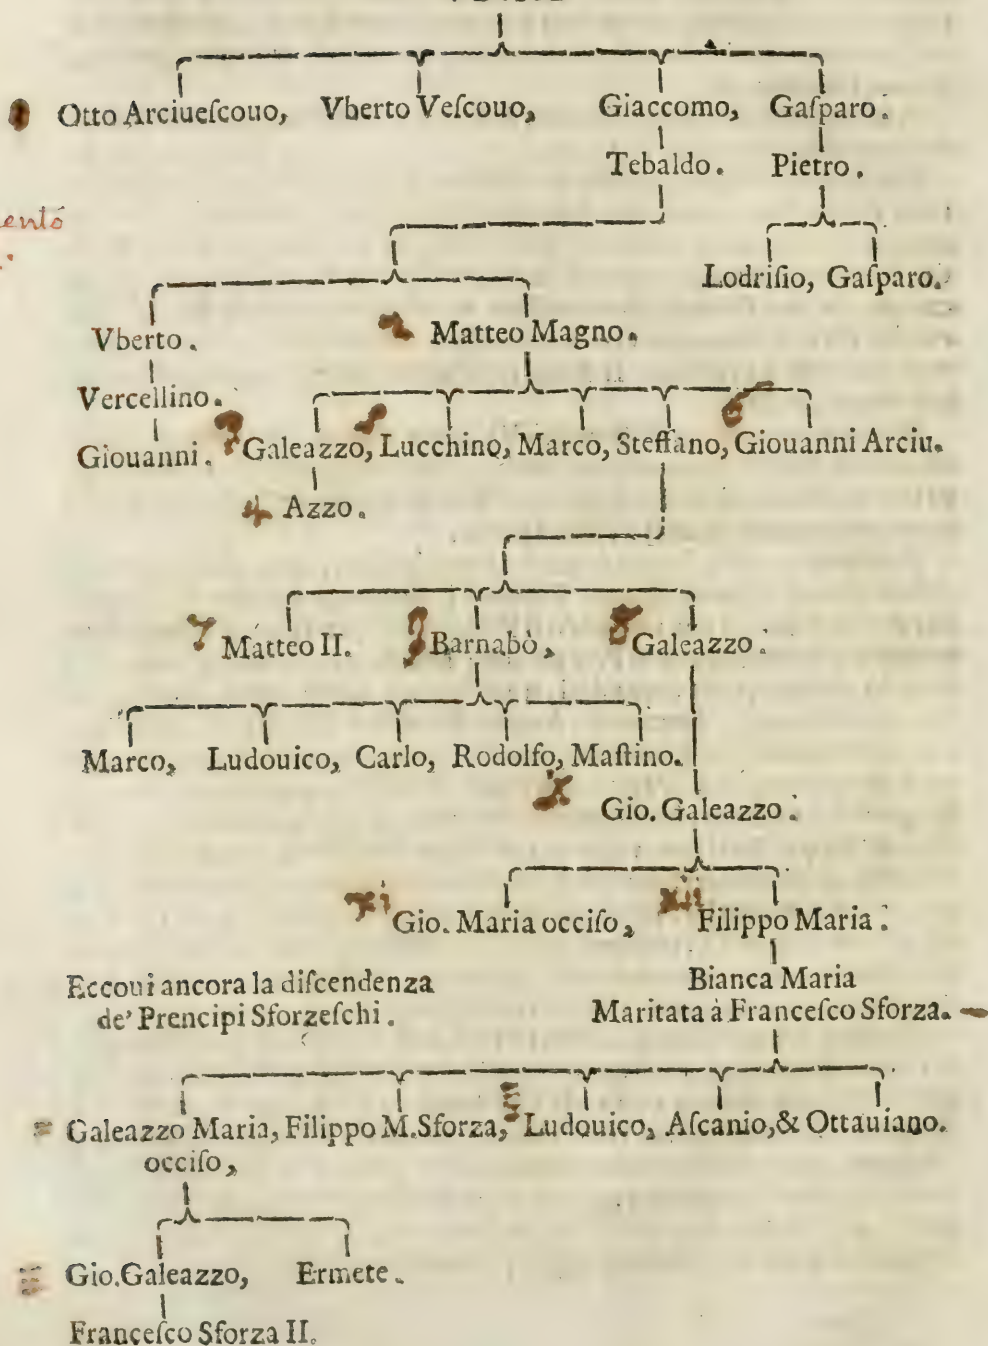 Otto Arciueſcouo, Vberto Veſcouo, Giaccomo, Gaſparo.
Tebaldo. Pietro.
Lodriſio, Gaſparo.
Vberto. 2 Matteo Magno.
Vercellino.
Giouanni. Galeazzo, Lucchino, Marco, Steffano, 6 Giouanni Arciu.
4 Azzo.
7 Matteo II. 9 Barnabò, 8 Galeazzo.
Marco, Ludouico, Carlo, Rodolfo, Maſtino.
x Gio. Galeazzo.
xi Gio. Maria occiſo, xii Filippo Maria.
Eccoui ancora la diſcendenza
de' Prencipi Sforzeſchi.
Bianca Maria
Maritata à Franceſco Sforza.
Galeazzo Maria, Filippo M. Sforza, Ludouico, Aſcanio, & Ottauiano.
occiſo,
Gio. Galeazzo, Ermete.
Franceſco Sforza II.